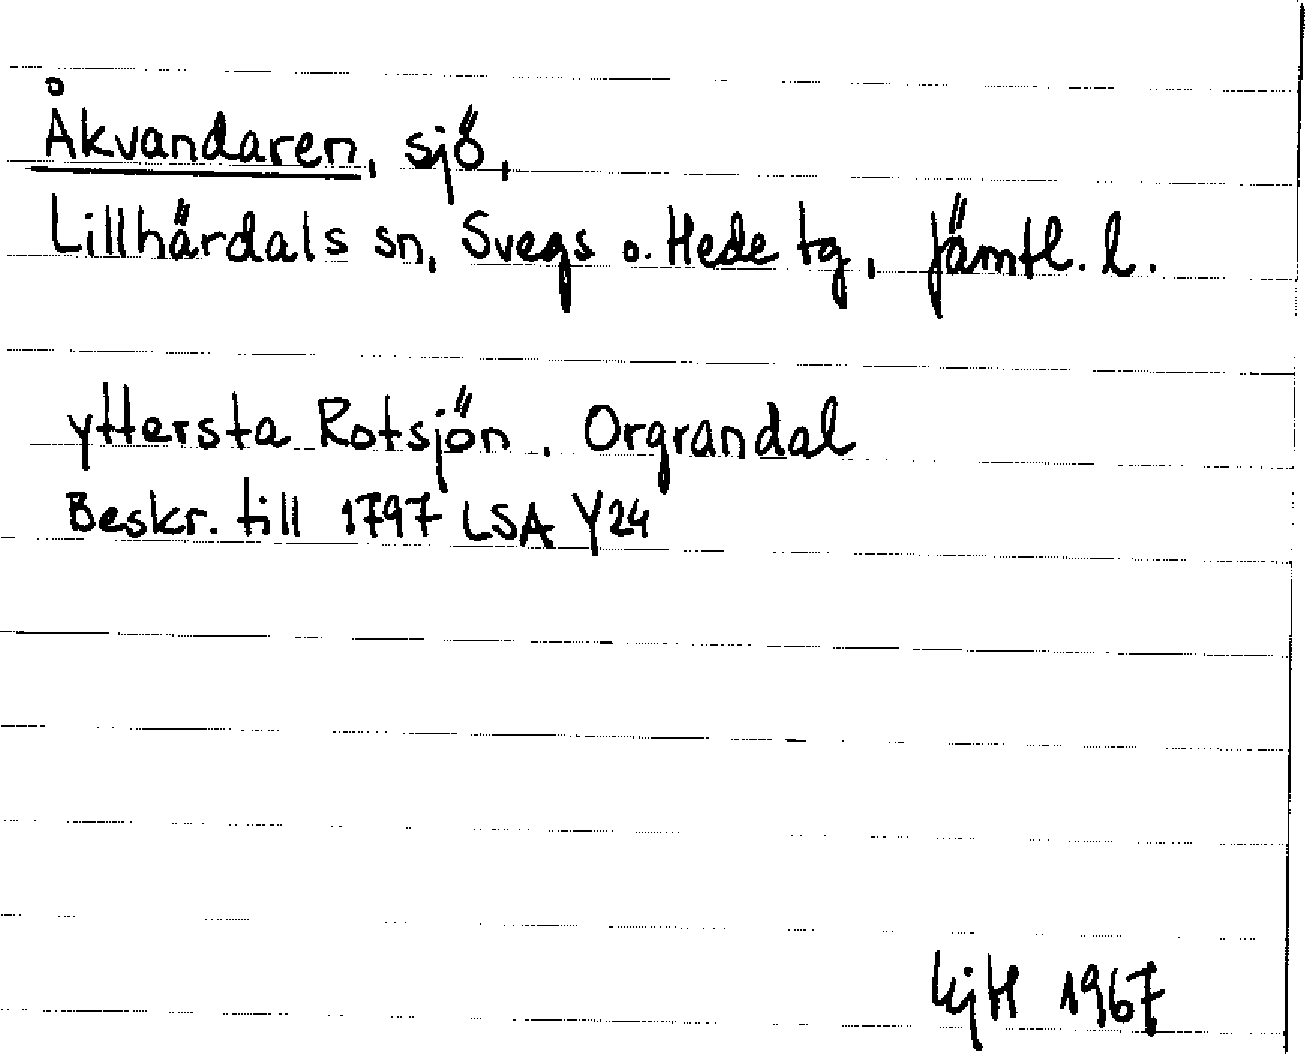 Åkvandaren, sjö,
Lillhärdals sn, Svegs o. Hede tg, Jämtl. l.
yttersta Rotsjön. Orgrandal
Beskr. till 1797 LSA Y24
KjH 1967